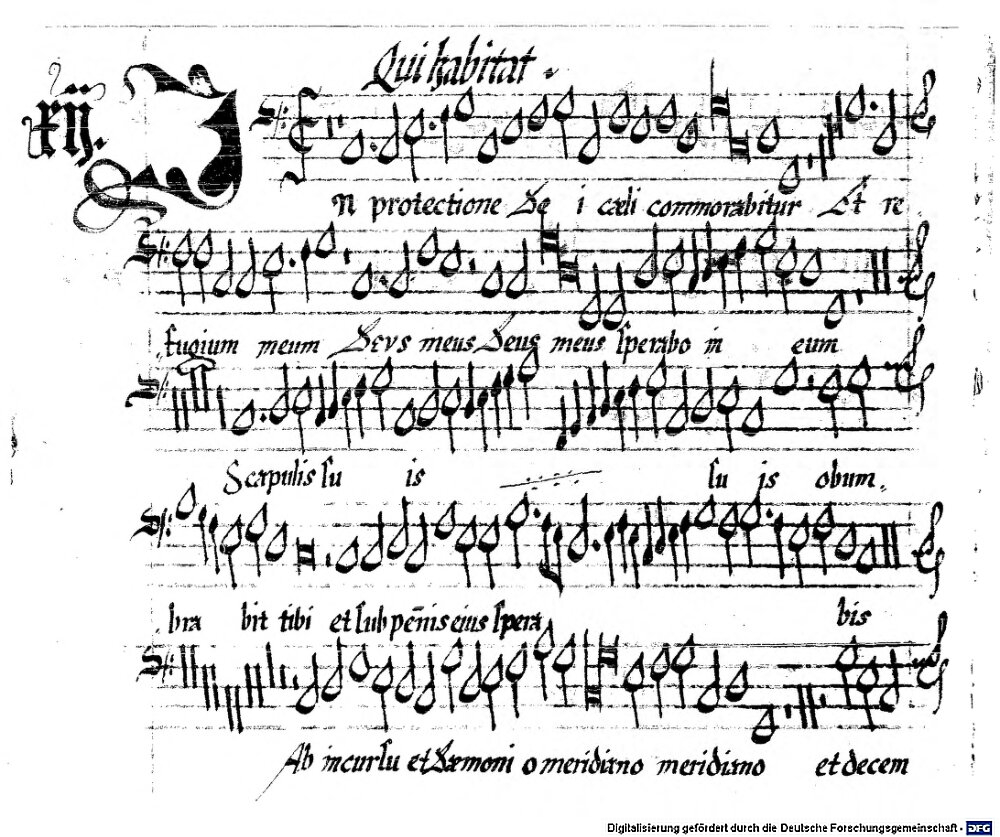 Qui habitat
xij.
In protectione Dei cæli commorabitur Et re
fugium meum Deus meus Deus meus sperabo in eum
Scapulis suis suis obum
brabit tibi et sub pēnis eius sperabis
Ab incursu et dæmonio meridiano meridiano et decem
Digitalisierung gefördert durch die Deutsche Forschungsgemeinschaft - DFG